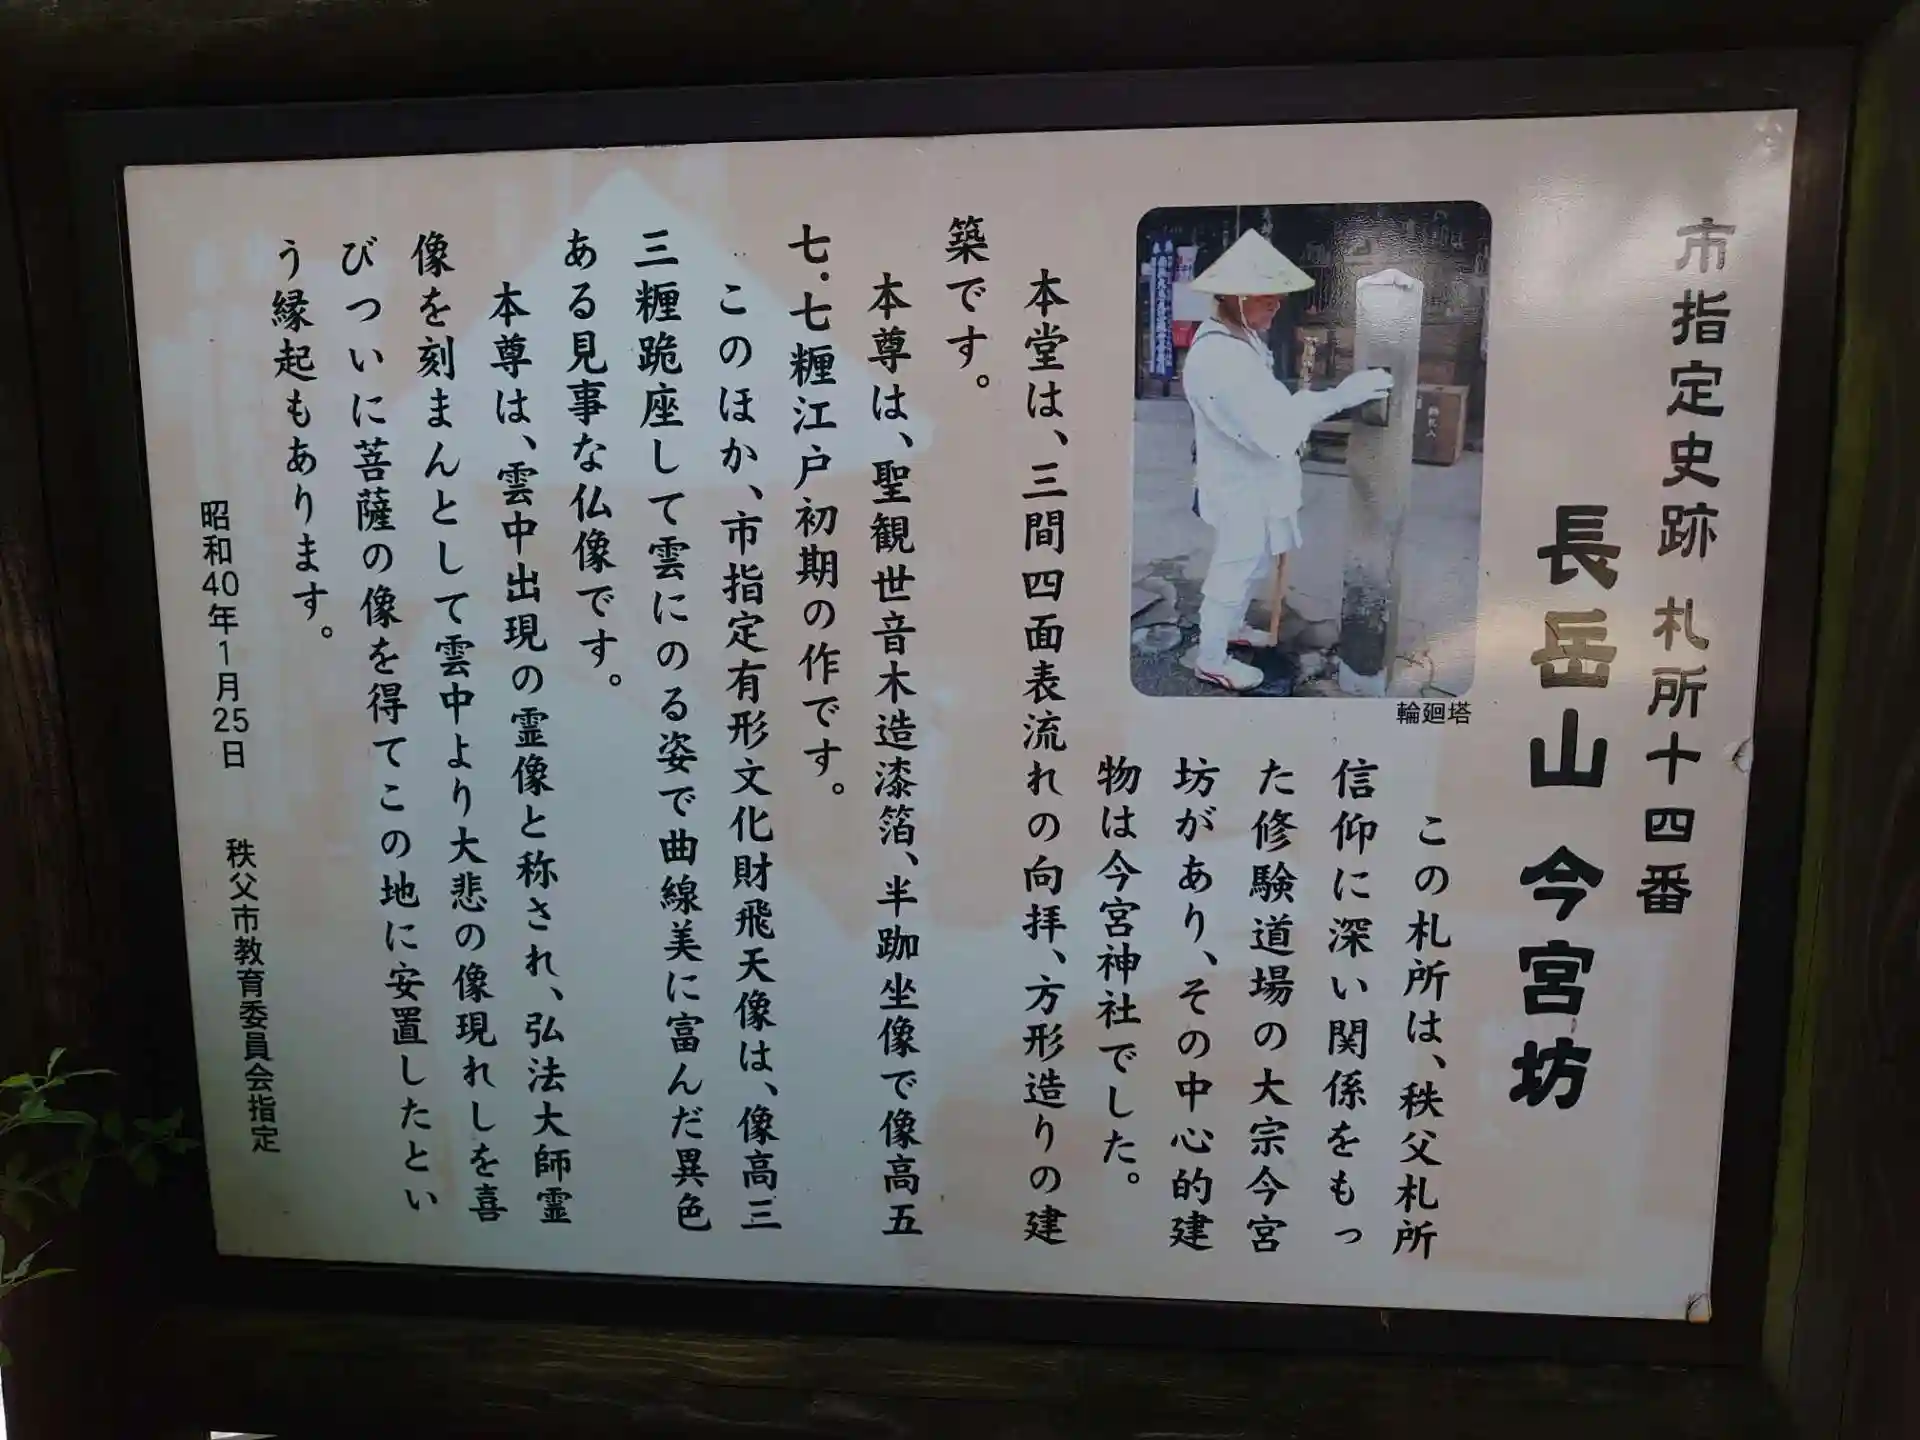 市指定史跡 札所十四番
長岳山 今宮坊
輪廻塔
この札所は、秩父札所
信仰に深い関係をもっ
た修験道場の大宗今宮
坊があり、その中心的建
物は今宮神社でした。
本堂は、三間四面表流れの向拝、方形造りの建
築です。
本尊は、聖観世音木造漆箔、半跏坐像で像高五
七・七糎江戸初期の作です。
このほか、市指定有形文化財飛天像は、像高三
三糎跪座して雲にのる姿で曲線美に富んだ異色
ある見事な仏像です。
本尊は、雲中出現の霊像と称され、弘法大師霊
像を刻まんとして雲中より大悲の像現れしを喜
びついに菩薩の像を得てこの地に安置したとい
う縁起もあります。
昭和40年1月25日 秩父市教育委員会指定